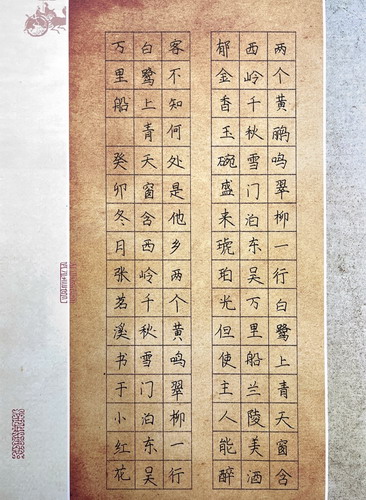 两个黄鹂鸣翠柳一行白鹭上青天窗含
西岭千秋雪门泊东吴万里船兰陵美酒
郁金香玉碗盛来琥珀光但使主人能醉
客不知何处是他乡两个黄鸣翠柳一行
白鹭上青天窗含西岭千秋雪门泊东吴
万里船 癸卯冬月张茗溪书于小红花